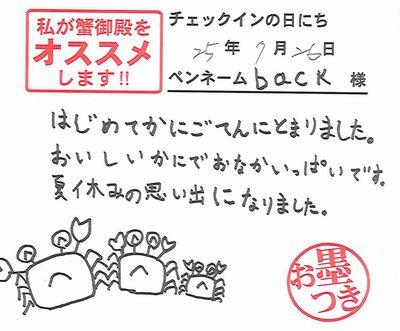 私が蟹御殿を
オススメ
します!!
チェックインの日にち
25年7月26日
ペンネーム back 様
はじめてかにごてんにとまりました。
おいしいかにでおなかいっぱいです。
夏休みの思い出になりました。
お墨つき